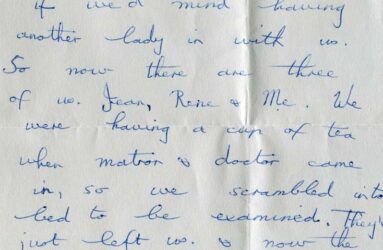 if we'd mind having
another lady in with us.
So now there are three
of us. Jean, Rene & Me. We
were having a cup of tea
when matron & doctor came
in, so we scrambled into
bed to be examined. They'
just left us. & now the